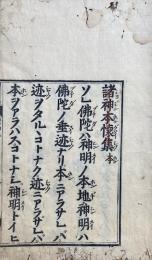 諸神本懐集 本
ソレ佛陀ハ神明ノ本地神明ハ
佛陀ノ垂迹ナリ本ニアラサレハ
迹ヲタルヽコトナク迹ニアラサレハ
本ヲアラハスコトナシ神明トイヒ